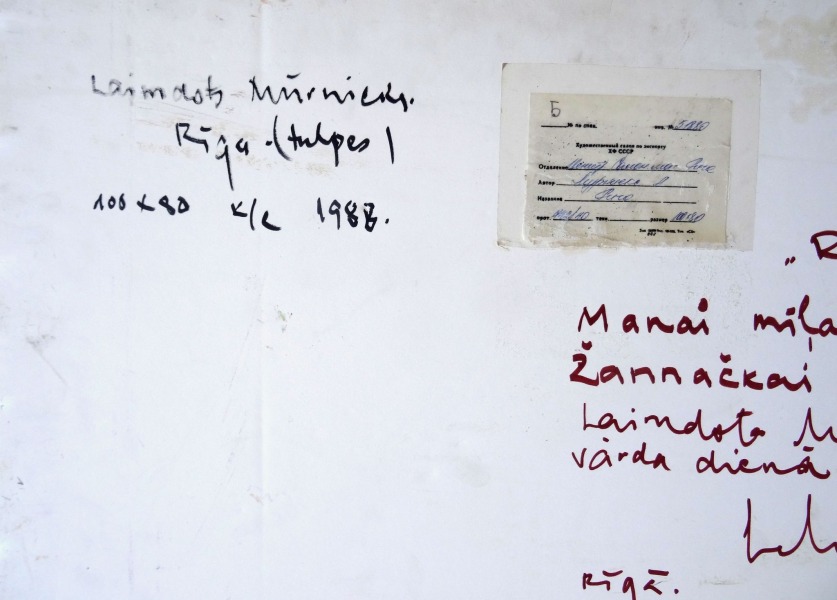 Laimdots Mūrnieks.
Rīga (tulpes)
100 x 80 k/e 1988.
Б
№ по спец. инв. №
Художественный салон по экспорту
ХФ СССР
Отделение
Автор
Название Рига
прот. тема размер 100 80
„R
Manai mīļa
Žannačkai
Laimdots M
vārda dienā
Rīgā.